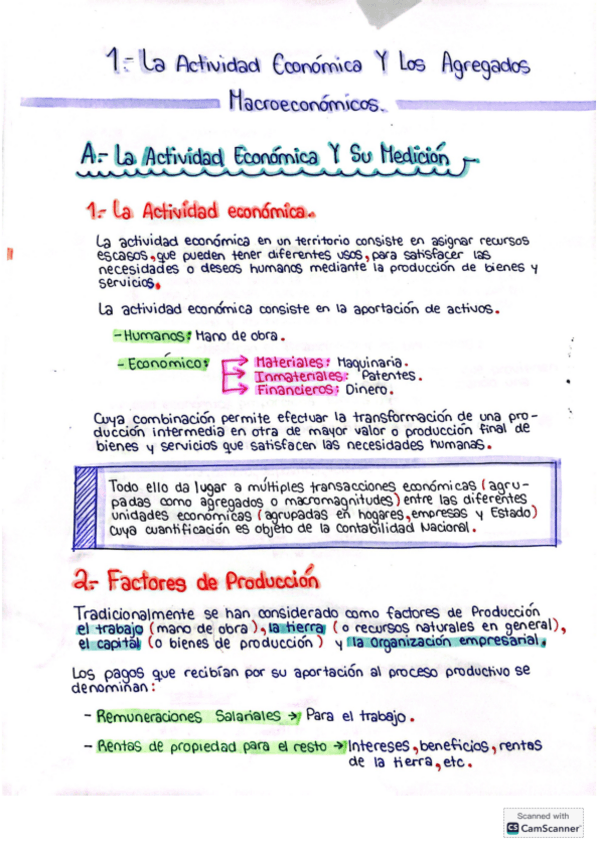 1.- La Actividad Económica Y Los Agregados
Macroeconómicos.
A.- La Actividad Económica Y Su Medición
1.- La Actividad económica.
La actividad económica en un territorio consiste en asignar recursos
escasos, que pueden tener diferentes usos, para satisfacer las
necesidades o deseos humanos mediante la producción de bienes y
servicios.
La actividad económica consiste en la aportación de activos.
- Humanos: Mano de obra.
- Económico: Materiales: Maquinaria.
Inmateriales: Patentes.
Financieros: Dinero.
Cuya combinación permite efectuar la transformación de una pro-
ducción intermedia en otra de mayor valor o producción final de
bienes y servicios que satisfacen las necesidades humanas.
Todo ello da lugar a múltiples transacciones económicas (agru-
padas como agregados o macromagnitudes) entre las diferentes
unidades económicas (agrupadas en hogares, empresas y Estado)
cuya cuantificación es objeto de la Contabilidad Nacional.
2.- Factores de Producción
Tradicionalmente se han considerado como factores de Producción
el trabajo (mano de obra), la tierra (o recursos naturales en general),
el capital (o bienes de producción) y la organización empresarial.
Los pagos que recibían por su aportación al proceso productivo se
denominan:
- Remuneraciones Salariales → Para el trabajo.
- Rentas de propiedad para el resto → Intereses, beneficios, rentas
de la tierra, etc.
Scanned with
CS CamScanner